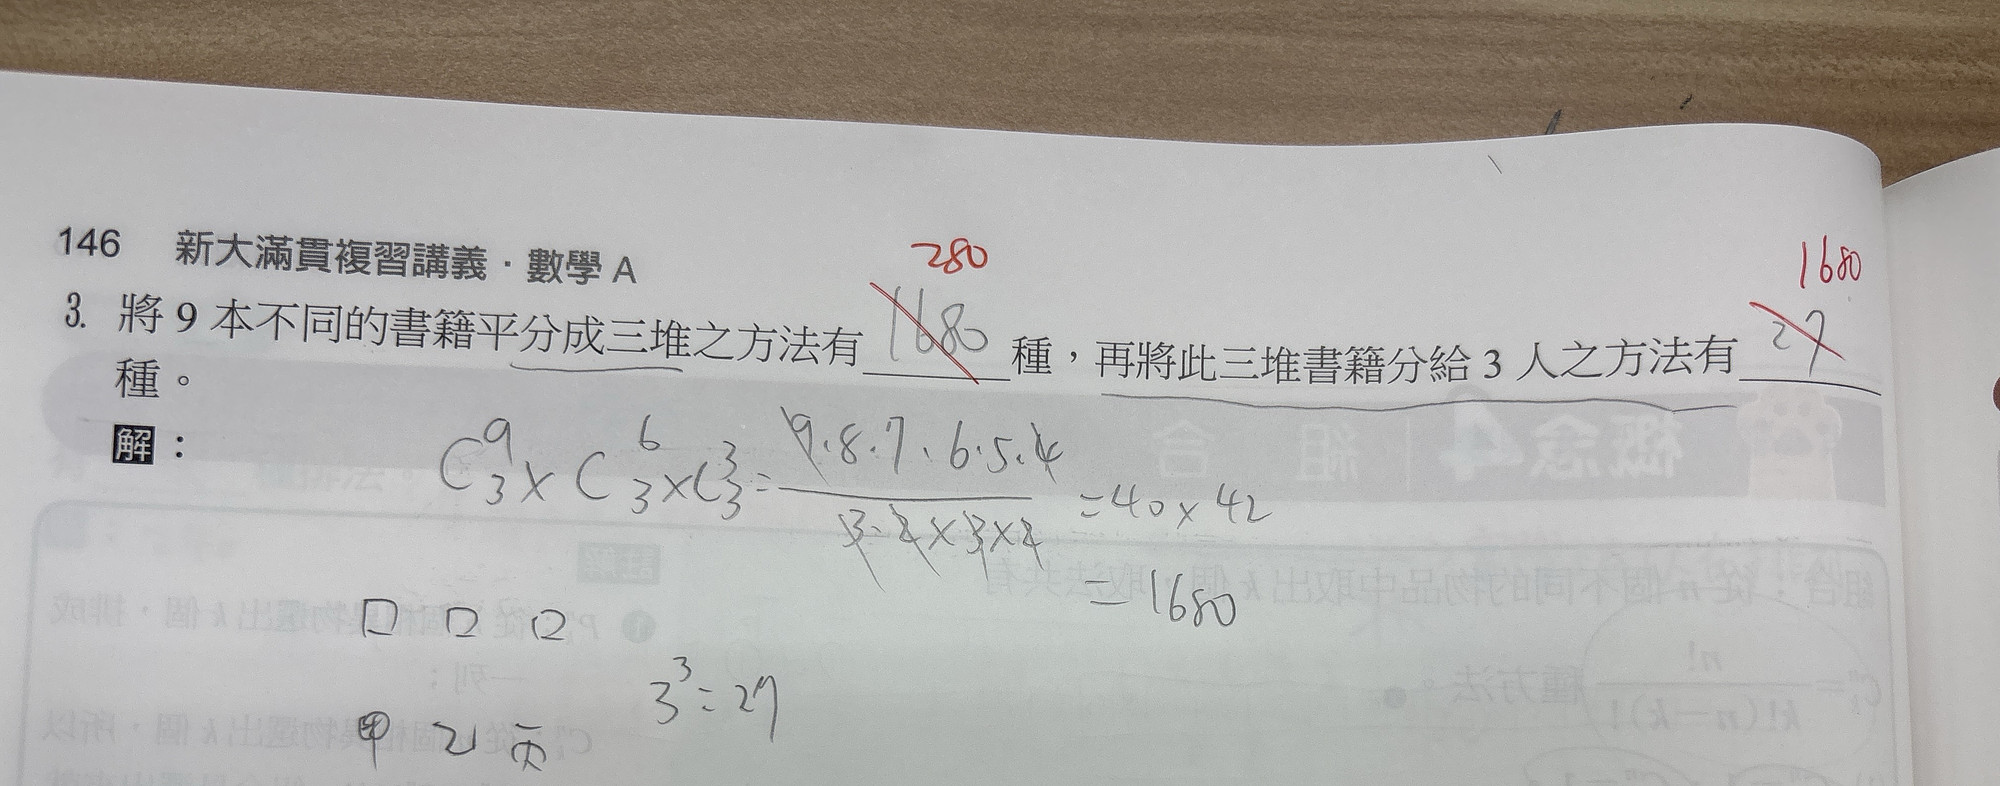 146 新大滿貫複習講義．數學 A
280
1680
3. 將 9 本不同的書籍平分成三堆之方法有 1680 種，再將此三堆書籍分給 3 人之方法有 27
種。
解：
C⁹₃ × C⁶₃ × C³₃ = 9·8·7·6·5·4 / 3·2×3×2 = 40×42
= 1680
口 口 口
3³ = 27
甲 乙 丙